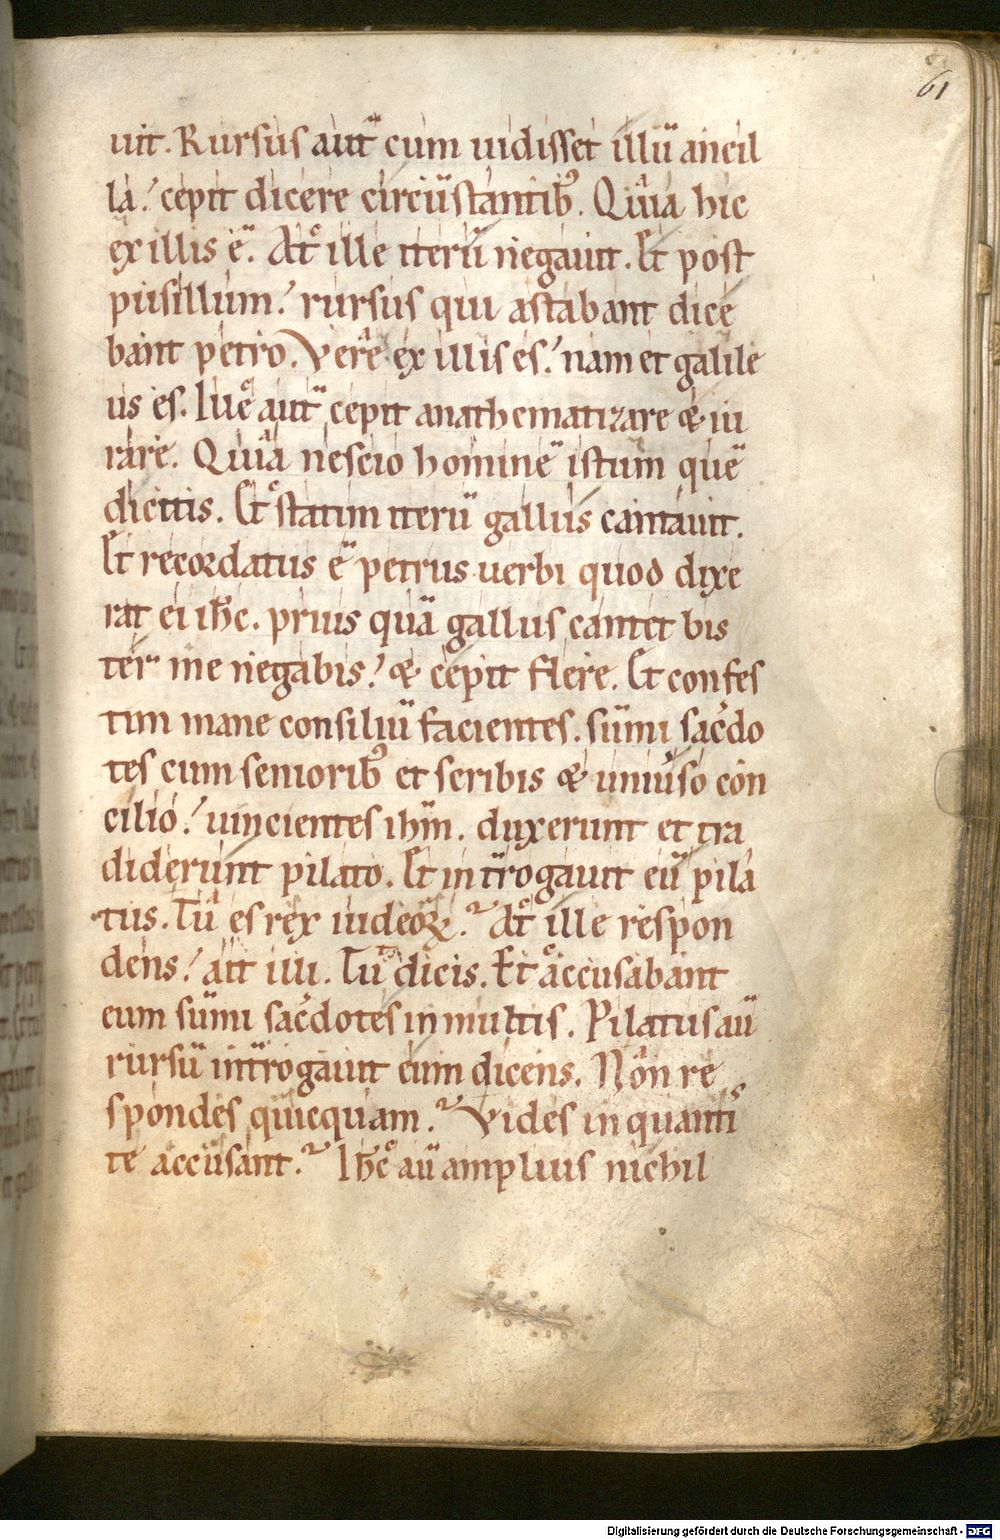 61
uit. Rursus aut̄ cum uidisset illū ancil
la! cepit dicere circūstantibꝰ. Quia hic
ex illis ē. At ille iterū negauit. Et post
pusillum! rursus qui astabant dice
bant petro. Vere ex illis es! nam et galile
us es. Ille aut̄ cepit anathematizare & iu
rare. Quia nescio hominē istum quē
dicitis. Et statim iterū gallus cantauit.
Et recordatus ē petrus uerbi quod dixe
rat ei ihc̄. prius quā gallus cantet bis
ter me negabis! & cepit flere. Et confes
tim mane consiliū facientes. sūmi sac̄do
tes cum senioribꝰ et scribis & uniu̓so con
cilio! uincientes ihm̄. duxerunt et tra
diderunt pilato. Et int̄rogauit eū pila
tus. Tu es rex iudeoꝝ? At ille respon
dens! ait illi. Tu dicis. Et accusabant
eum sūmi sac̄dotes in multis. Pilatus aū
rursū int̄rogauit eum dicens. Non re
spondes quicquam? Vides in quantis
te accusant? Ihc̄ aū amplius nichil
Digitalisierung gefördert durch die Deutsche Forschungsgemeinschaft - DFG